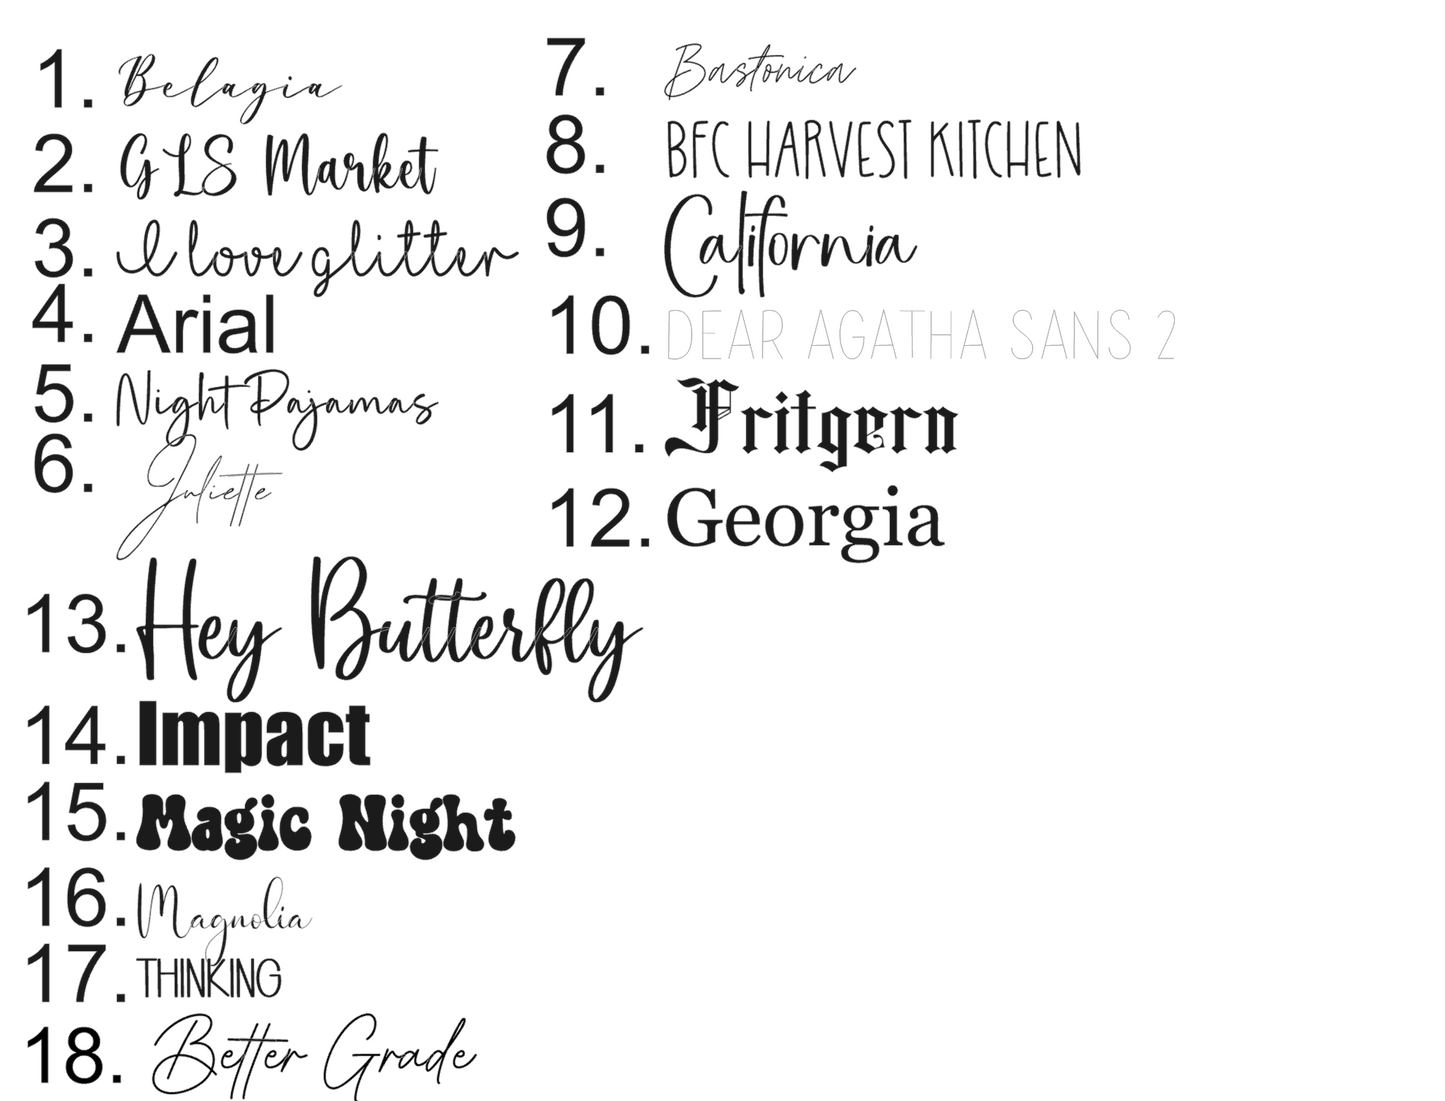 1. Belagia
2. GLS Market
3. I love glitter
4. Arial
5. Night Pajamas
6. Juliette
7. Bastonica
8. BFC HARVEST KITCHEN
9. California
10. DEAR AGATHA SANS 2
11. Fritgern
12. Georgia
13. Hey Butterfly
14. Impact
15. Magic Night
16. Magnolia
17. THINKING
18. Better Grade